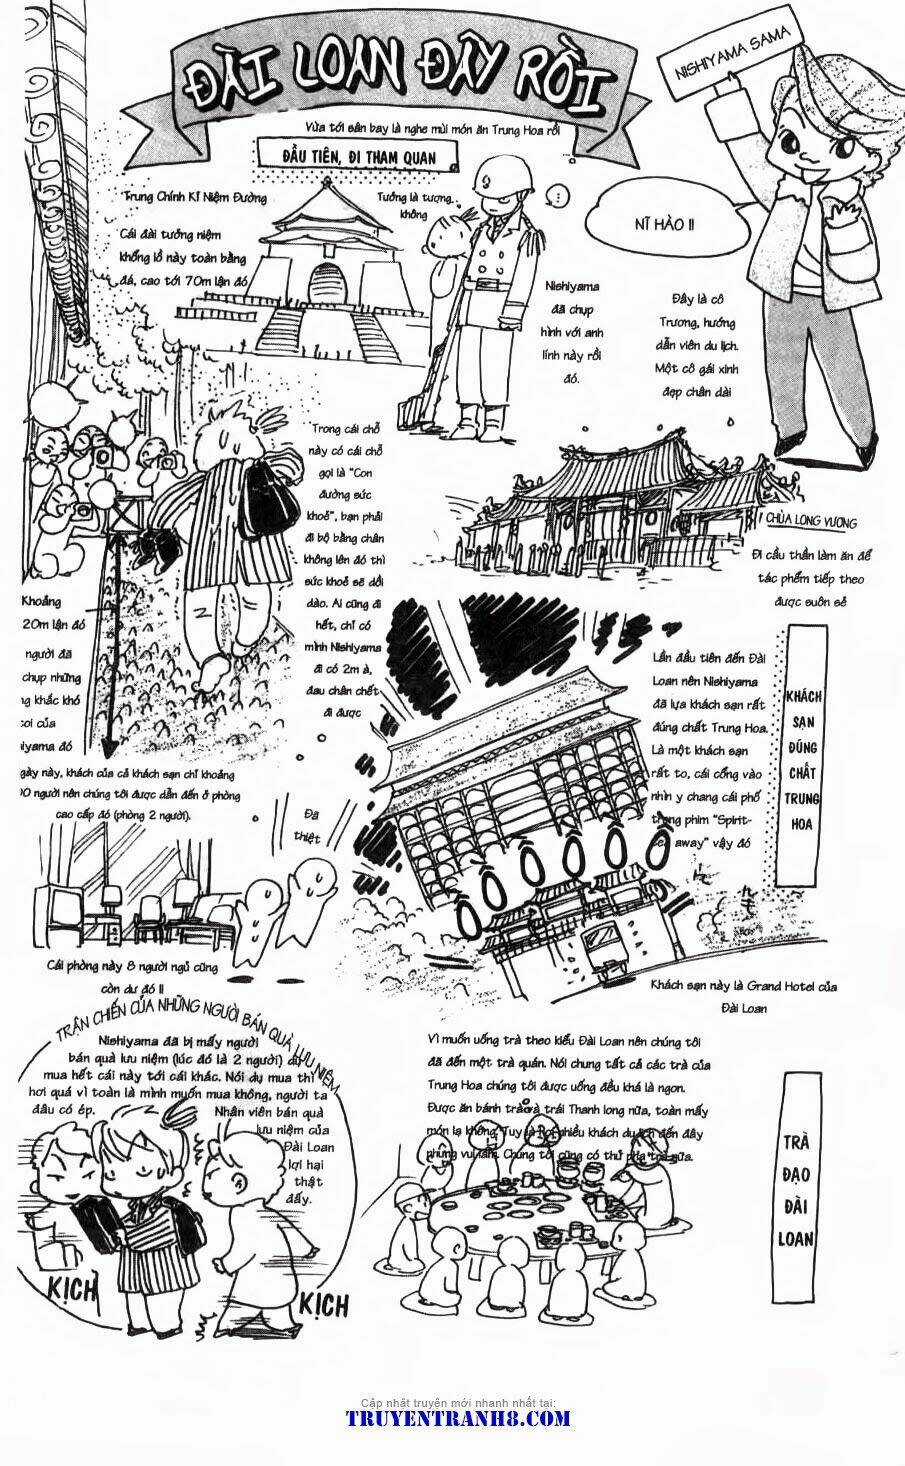 ĐÀI LOAN ĐÂY RỒI
NISHIYAMA SAMA
Vừa tới sân bay là nghe mùi món ăn Trung Hoa rồi
ĐẦU TIÊN, ĐI THAM QUAN
NĨ HẢO !!
Trung Chính Kỉ Niệm Đường
Tưởng là tượng,
không
Cái đài tưởng niệm
khổng lồ này toàn bằng
đá, cao tới 70m lận đó
Nishiyama
đã chụp
hình với anh
lính này rồi
đó.
Đây là cô
Trương, hướng
dẫn viên du lịch.
Một cô gái xinh
đẹp chân dài
Trong cái chỗ
này có cái chỗ
gọi là "Con
đường sức
khoẻ", bạn phải
đi bộ bằng chân
không lên đó thì
sức khoẻ sẽ dồi
dào. Ai cũng đi
hết, chỉ có
mình Nishiyama
đi có 2m à,
đau chân chết
đi được
CHÙA LONG VƯƠNG
Đi cầu thần làm ăn để
tác phẩm tiếp theo
được suôn sẻ
Khoảng
20m lận đó
người đã
chụp những
khắc khó
của
đó
này, khách của cả khách sạn chỉ khoảng
người nên chúng tôi được dẫn đến ở phòng
cao cấp đó (phòng 2 người).
Lần đầu tiên đến Đài
Loan nên Nishiyama
đã lựa khách sạn rất
đúng chất Trung Hoa.
Là một khách sạn
rất to, cái cổng vào
nhìn y chang cái phố
trong phim "Spirit-
away" vậy đó
KHÁCH
SẠN
ĐÚNG
CHẤT
TRUNG
HOA
Đã
thiệt
Cái phòng này 8 người ngủ cũng
còn dư đó !!
Khách sạn này là Grand Hotel của
Đài Loan
TRẬN CHIẾN CỦA NHỮNG NGƯỜI BÁN QUÀ LƯU NIỆM
Nishiyama đã bị mấy người
bán quà lưu niệm (lúc đó là 2 người) dụ
mua hết cái này tới cái khác. Nói dụ mua thì
hơi quá vì toàn là mình muốn mua không, người ta
đâu có ép.
Nhân viên bán quà
lưu niệm của
Đài Loan
lợi hại
thật
đấy.
KỊCH
KỊCH
Vì muốn uống trà theo kiểu Đài Loan nên chúng tôi
đã đến một trà quán. Nói chung tất cả các trà của
Trung Hoa chúng tôi được uống đều khá là ngon.
Được ăn bánh trà và trái Thanh long nữa, toàn mấy
món lạ không. Tuy là hơi nhiều khách du lịch đến đây
nhưng vui lắm. Chúng tôi cũng có thử pha trà nữa.
TRÀ
ĐẠO
ĐÀI
LOAN
Cập nhật truyện mới nhanh nhất tại:
TRUYENTRANH8.COM